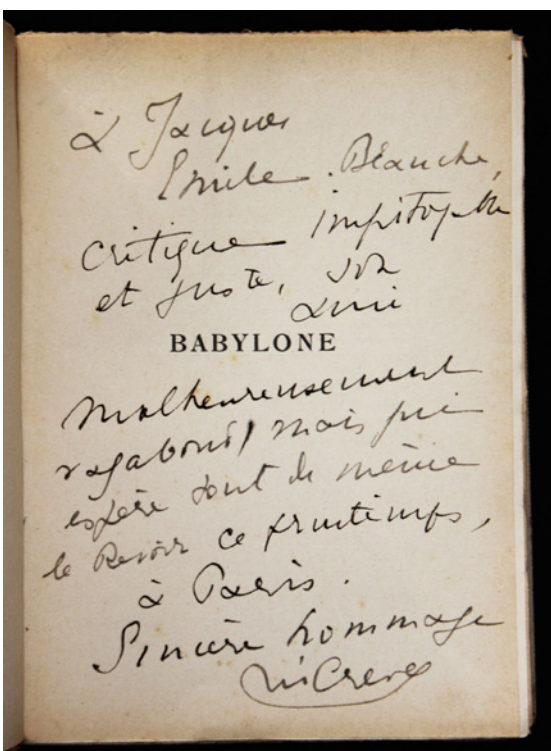 à Jacques
Emile. Blanche,
critique impitoyable
et juste, son
ami
BABYLONE
malheureusement
vagabond, mais qui
espère tout de même
le Revoir ce printemps,
à Paris.
Sincère hommage
Crevel